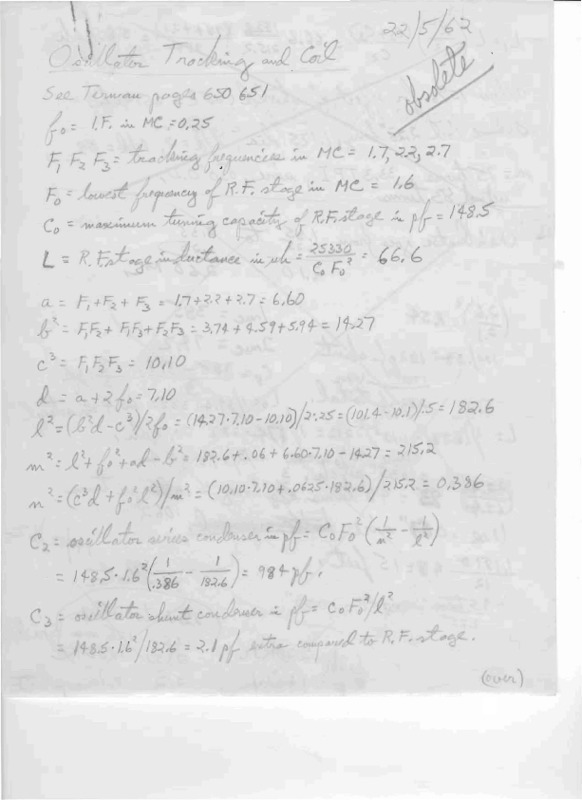 22/5/62
Oscillator Tracking and Coil
obsolete
See Terman pages 650, 651
f₀ = I.F. in MC = 0.25
F₁ F₂ F₃ = tracking frequencies in MC = 1.7, 2.2, 2.7
F₀ = lowest frequency of R.F. stage in MC = 1.6
C₀ = maximum tuning capacity of R.F. stage in pf = 148.5
L = R.F. stage inductance in uh = 25330/(C₀F₀²) = 66.6
a = F₁+F₂+F₃ = 1.7+2.2+2.7 = 6.60
b² = F₁F₂+F₁F₃+F₂F₃ = 3.74+4.59+5.94 = 14.27
c³ = F₁F₂F₃ = 10.10
d = a+2f₀ = 7.10
l² = (b²d-c³)/2f₀ = (14.27·7.10-10.10)/2·.25 = (101.4-10.1)/.5 = 182.6
m² = l²+f₀²+ad-b² = 182.6+.06+6.60·7.10-14.27 = 215.2
n² = (c³d+f₀²l²)/m² = (10.10·7.10+.0625·182.6)/215.2 = 0.386
C₂ = oscillator series condenser in pf = C₀F₀²(1/n² - 1/l²)
= 148.5·1.6²(1/.386 - 1/182.6) = 984 pf.
C₃ = oscillator shunt condenser in pf = C₀F₀²/l²
= 148.5·1.6²/182.6 = 2.1 pf extra compared to R.F. stage.
(over)